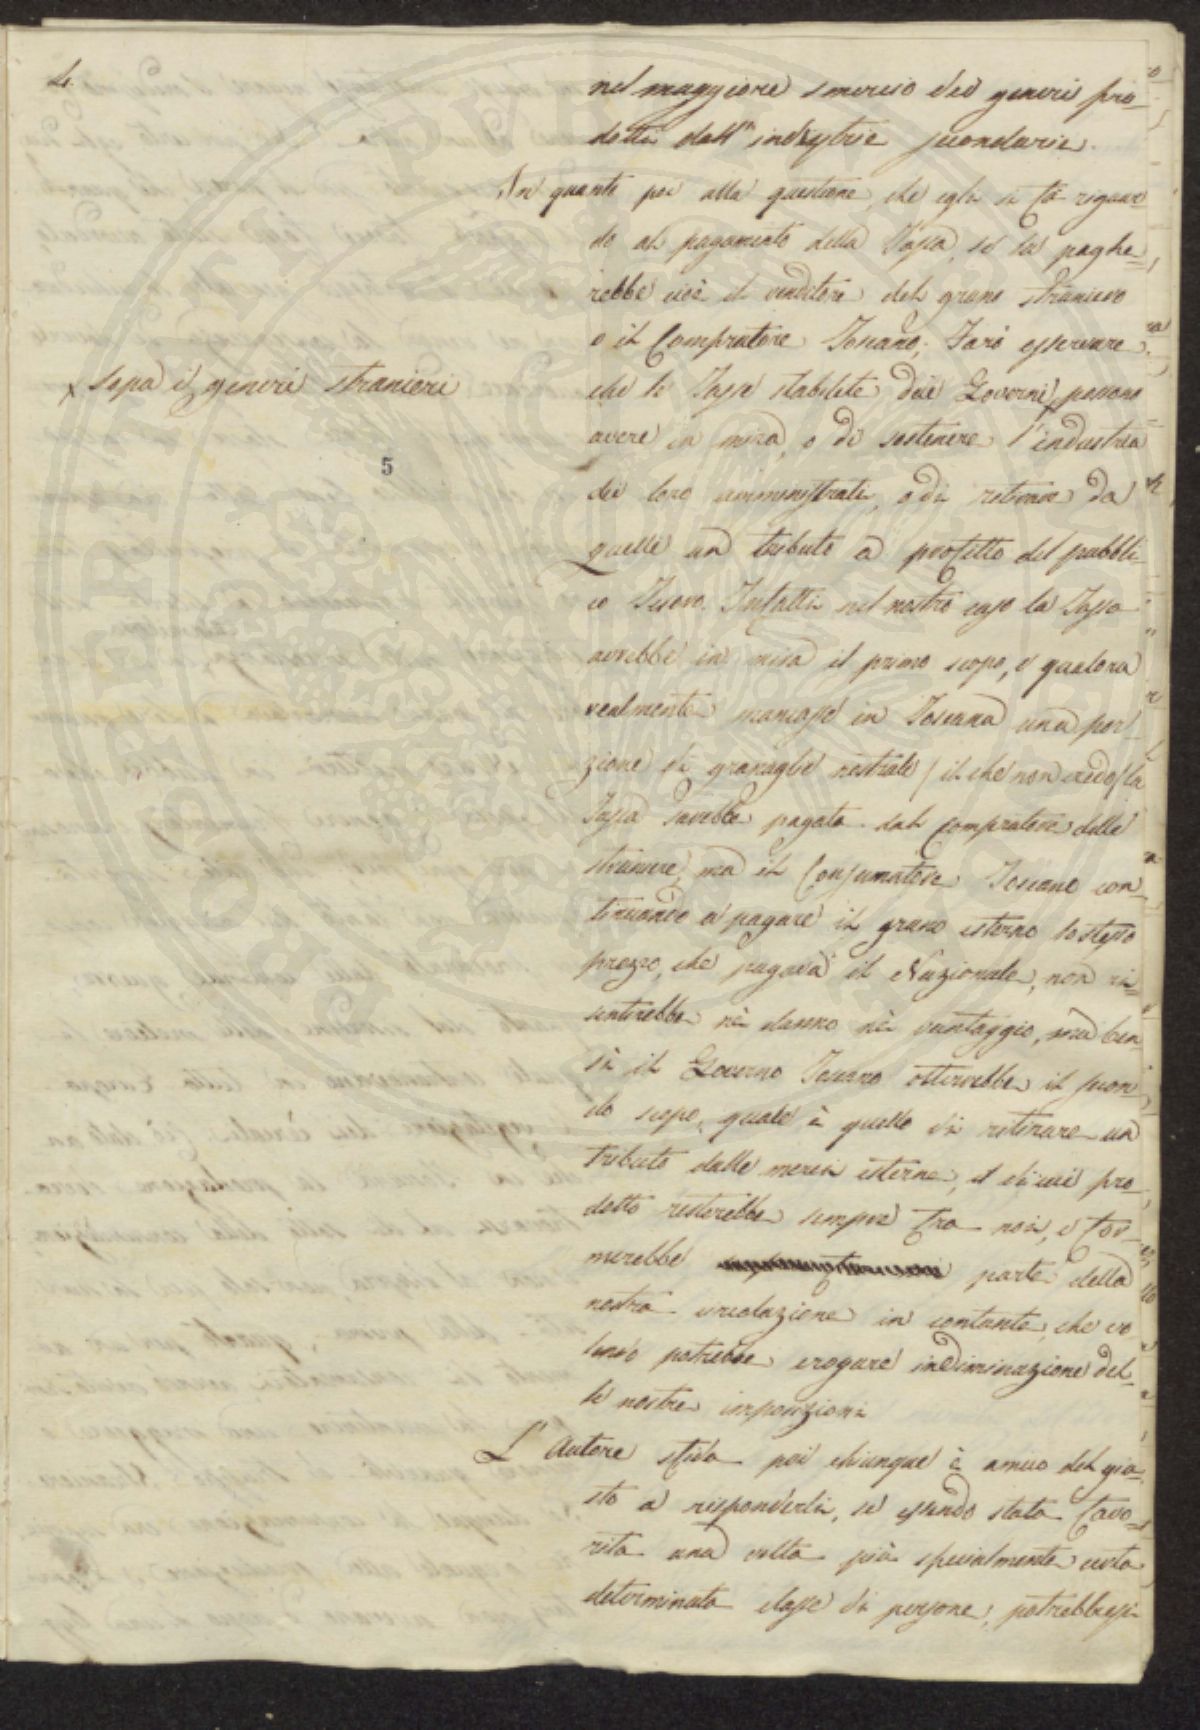 4.
nel maggiore smercio dei generi pro=
dotti dall'industria secondaria.
In quanto poi alla questione, che egli si fà riguar=
do al pagamento della Tassa, se la paghe=
rebbe cioè il venditore del grano straniero
o il Compratore Toscano; Farò osservare
che le Tasse stabilite dai Governi x possono
x sopra i generi stranieri
avere in mira, o di sostenere l'industria
5
dei loro amministrati, o di ritirare da
quelle un tributo a profitto del pubbli=
co Tesoro. Infatti nel nostro caso la Tassa
avrebbe in mira il primo scopo, e qualora
realmente mancasse in Toscana una por=
zione di granaglie nostrali / il che non credo / la
Tassa sarebbe pagata dal compratore delle
straniere, ma il Consumatore Toscano con=
tinuando a pagare il grano esterno lo stesso
prezzo, che pagava il Nazionale, non ri=
sentirebbe nè danno nè vantaggio, ma ben=
sì il Governo Toscano otterrebbe il secon=
do scopo, quale è quello di ritirare un
tributo dalle merci esterne, il di cui pro=
dotto resterebbe sempre tra noi, e for=
merebbe parte della
nostra circolazione in contante, che vo
lendo potrebbe erogare in diminuzione del=
le nostre imposizioni
L'Autore sfida poi chiunque è amico del giu=
sto a risponderli, se essendo stata favo=
rita una volta più specialmente certa
determinata classe di persone, potrebbesi